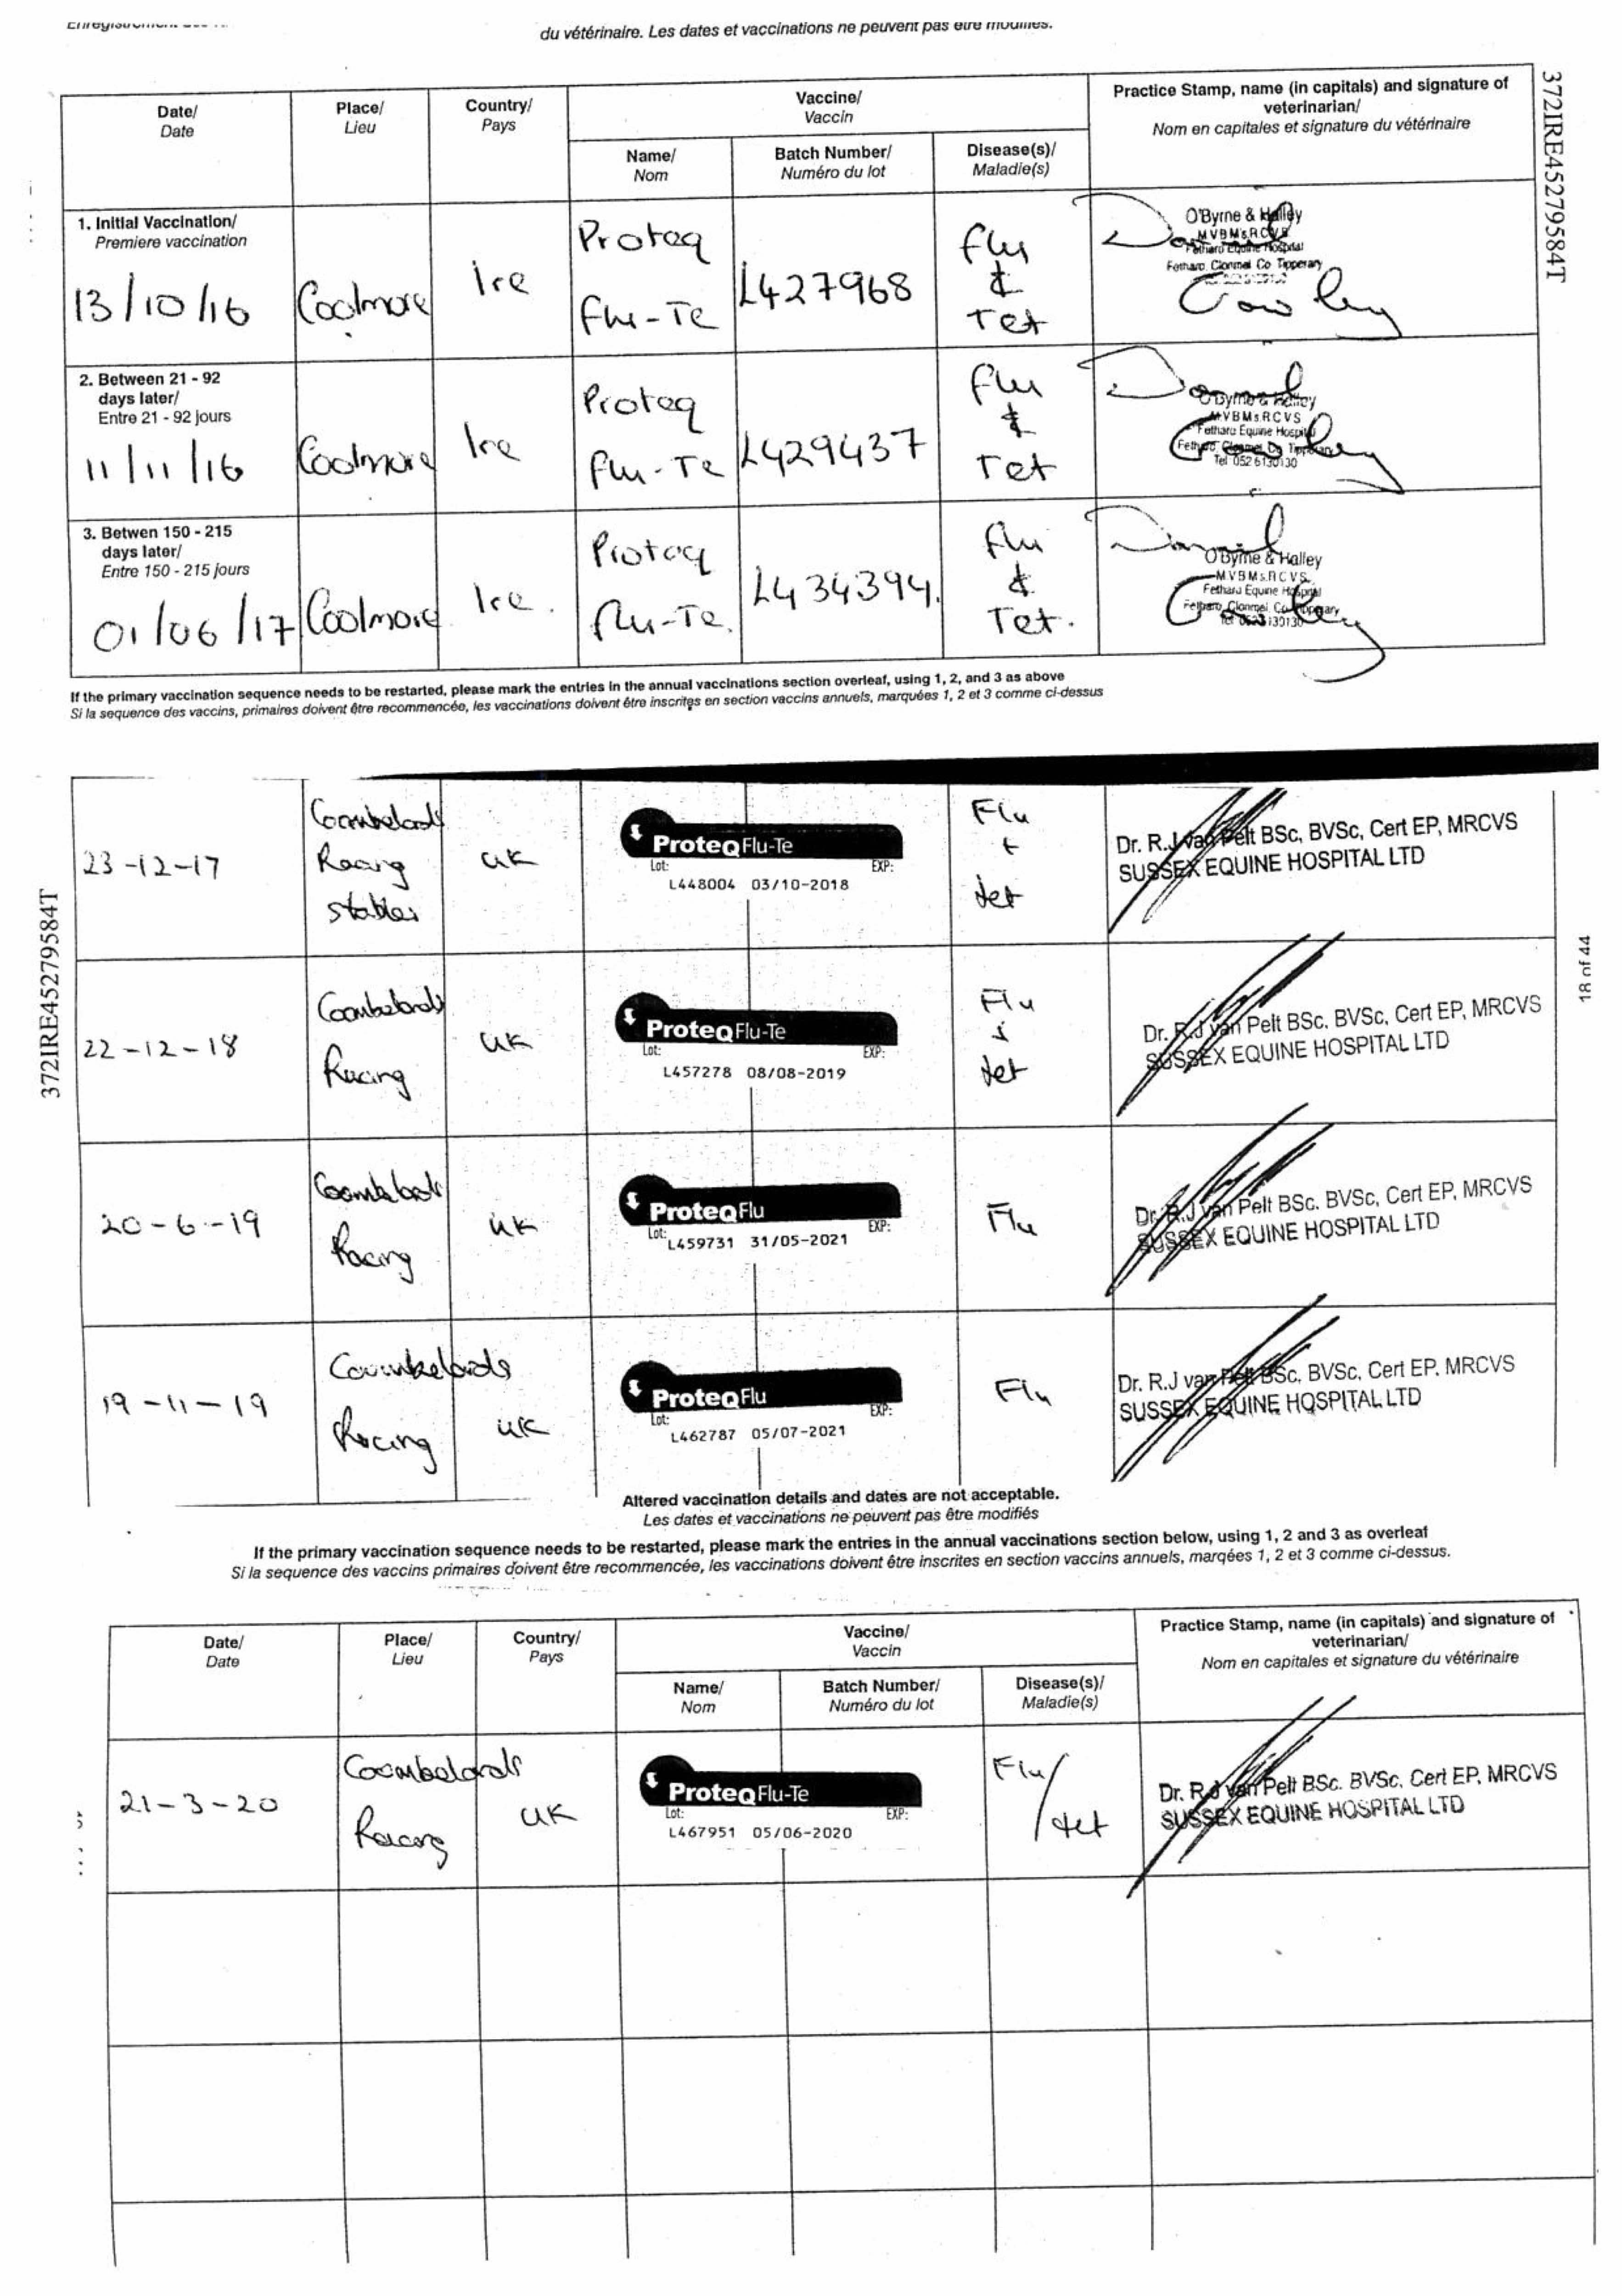 du vétérinaire. Les dates et vaccinations ne peuvent pas être
Date/
Date
Place/
Lieu
Country/
Pays
Vaccine/
Vaccin
Practice Stamp, name (in capitals) and signature of
veterinarian/
Nom en capitales et signature du vétérinaire
Name/
Nom
Batch Number/
Numéro du lot
Disease(s)/
Maladie(s)
372IRE45279584T
1. Initial Vaccination/
Premiere vaccination
13/10/16
Coolmore
Ire
Proteq
Flu-Te
L427968
Flu
&
Tet
O'Byrne & Halley
MVBMsRCVS
Fethard Equine Hospital
Fethard, Clonmel Co Tipperary
2. Between 21 - 92
days later/
Entre 21 - 92 jours
11/11/16
Coolmore
Ire
Proteq
Flu-Te
L429437
Flu
&
Tet
O'Byrne & Halley
MVBMsRCVS
Fethard Equine Hospital
Fethard, Clonmel Co Tipperary
Tel 052 6130130
3. Betwen 150 - 215
days later/
Entre 150 - 215 jours
01/06/17
Coolmore
Ire.
Proteq
Flu-Te.
L434394.
Flu
&
Tet.
O'Byrne & Halley
MVBMsRCVS
Fethard Equine Hospital
Fethard, Clonmel, Co Tipperary
If the primary vaccination sequence needs to be restarted, please mark the entries in the annual vaccinations section overleaf, using 1, 2, and 3 as above
Si la sequence des vaccins, primaires doivent être recommencée, les vaccinations doivent être inscrites en section vaccins annuels, marquées 1, 2 et 3 comme ci-dessus
372IRE45279584T
18 of 44
23-12-17
Coombelands
Racing
stables
UK
ProteqFlu-Te
Lot: EXP:
L448004 03/10-2018
Flu
+
tet
Dr. R.J van Pelt BSc, BVSc, Cert EP, MRCVS
SUSSEX EQUINE HOSPITAL LTD
22-12-18
Coombelands
Racing
UK
ProteqFlu-Te
Lot: EXP:
L457278 08/08-2019
Flu
+
tet
Dr. R.J van Pelt BSc. BVSc, Cert EP, MRCVS
SUSSEX EQUINE HOSPITAL LTD
20-6-19
Racing
UK
ProteqFlu
Lot: EXP:
L459731 31/05-2021
Flu
Dr. R.J van Pelt BSc. BVSc, Cert EP, MRCVS
SUSSEX EQUINE HOSPITAL LTD
19-11-19
Coombelands
Racing
UK
ProteqFlu
Lot: EXP:
L462787 05/07-2021
Flu
Dr. R.J van Pelt BSc, BVSc, Cert EP. MRCVS
SUSSEX EQUINE HOSPITAL LTD
Altered vaccination details and dates are not acceptable.
Les dates et vaccinations ne peuvent pas être modifiés
If the primary vaccination sequence needs to be restarted, please mark the entries in the annual vaccinations section below, using 1, 2 and 3 as overleaf
Si la sequence des vaccins primaires doivent être recommencée, les vaccinations doivent être inscrites en section vaccins annuels, marqées 1, 2 et 3 comme ci-dessus.
Date/
Date
Place/
Lieu
Country/
Pays
Vaccine/
Vaccin
Practice Stamp, name (in capitals) and signature of
veterinarian/
Nom en capitales et signature du vétérinaire
Name/
Nom
Batch Number/
Numéro du lot
Disease(s)/
Maladie(s)
21-3-20
Coombelands
Racing
UK
ProteqFlu-Te
Lot: EXP:
L467951 05/06-2020
Flu/
tet
Dr. R.J van Pelt BSc. BVSc, Cert EP, MRCVS
SUSSEX EQUINE HOSPITAL LTD